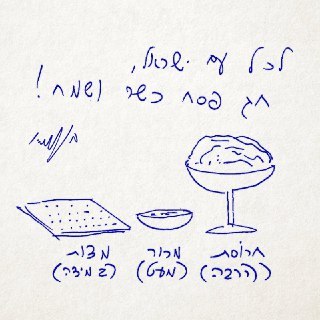 לכל עם ישראל,
חג פסח כשר ושמח!
מצות מרור חרוסת
(במידה) (מעט) (הרבה)